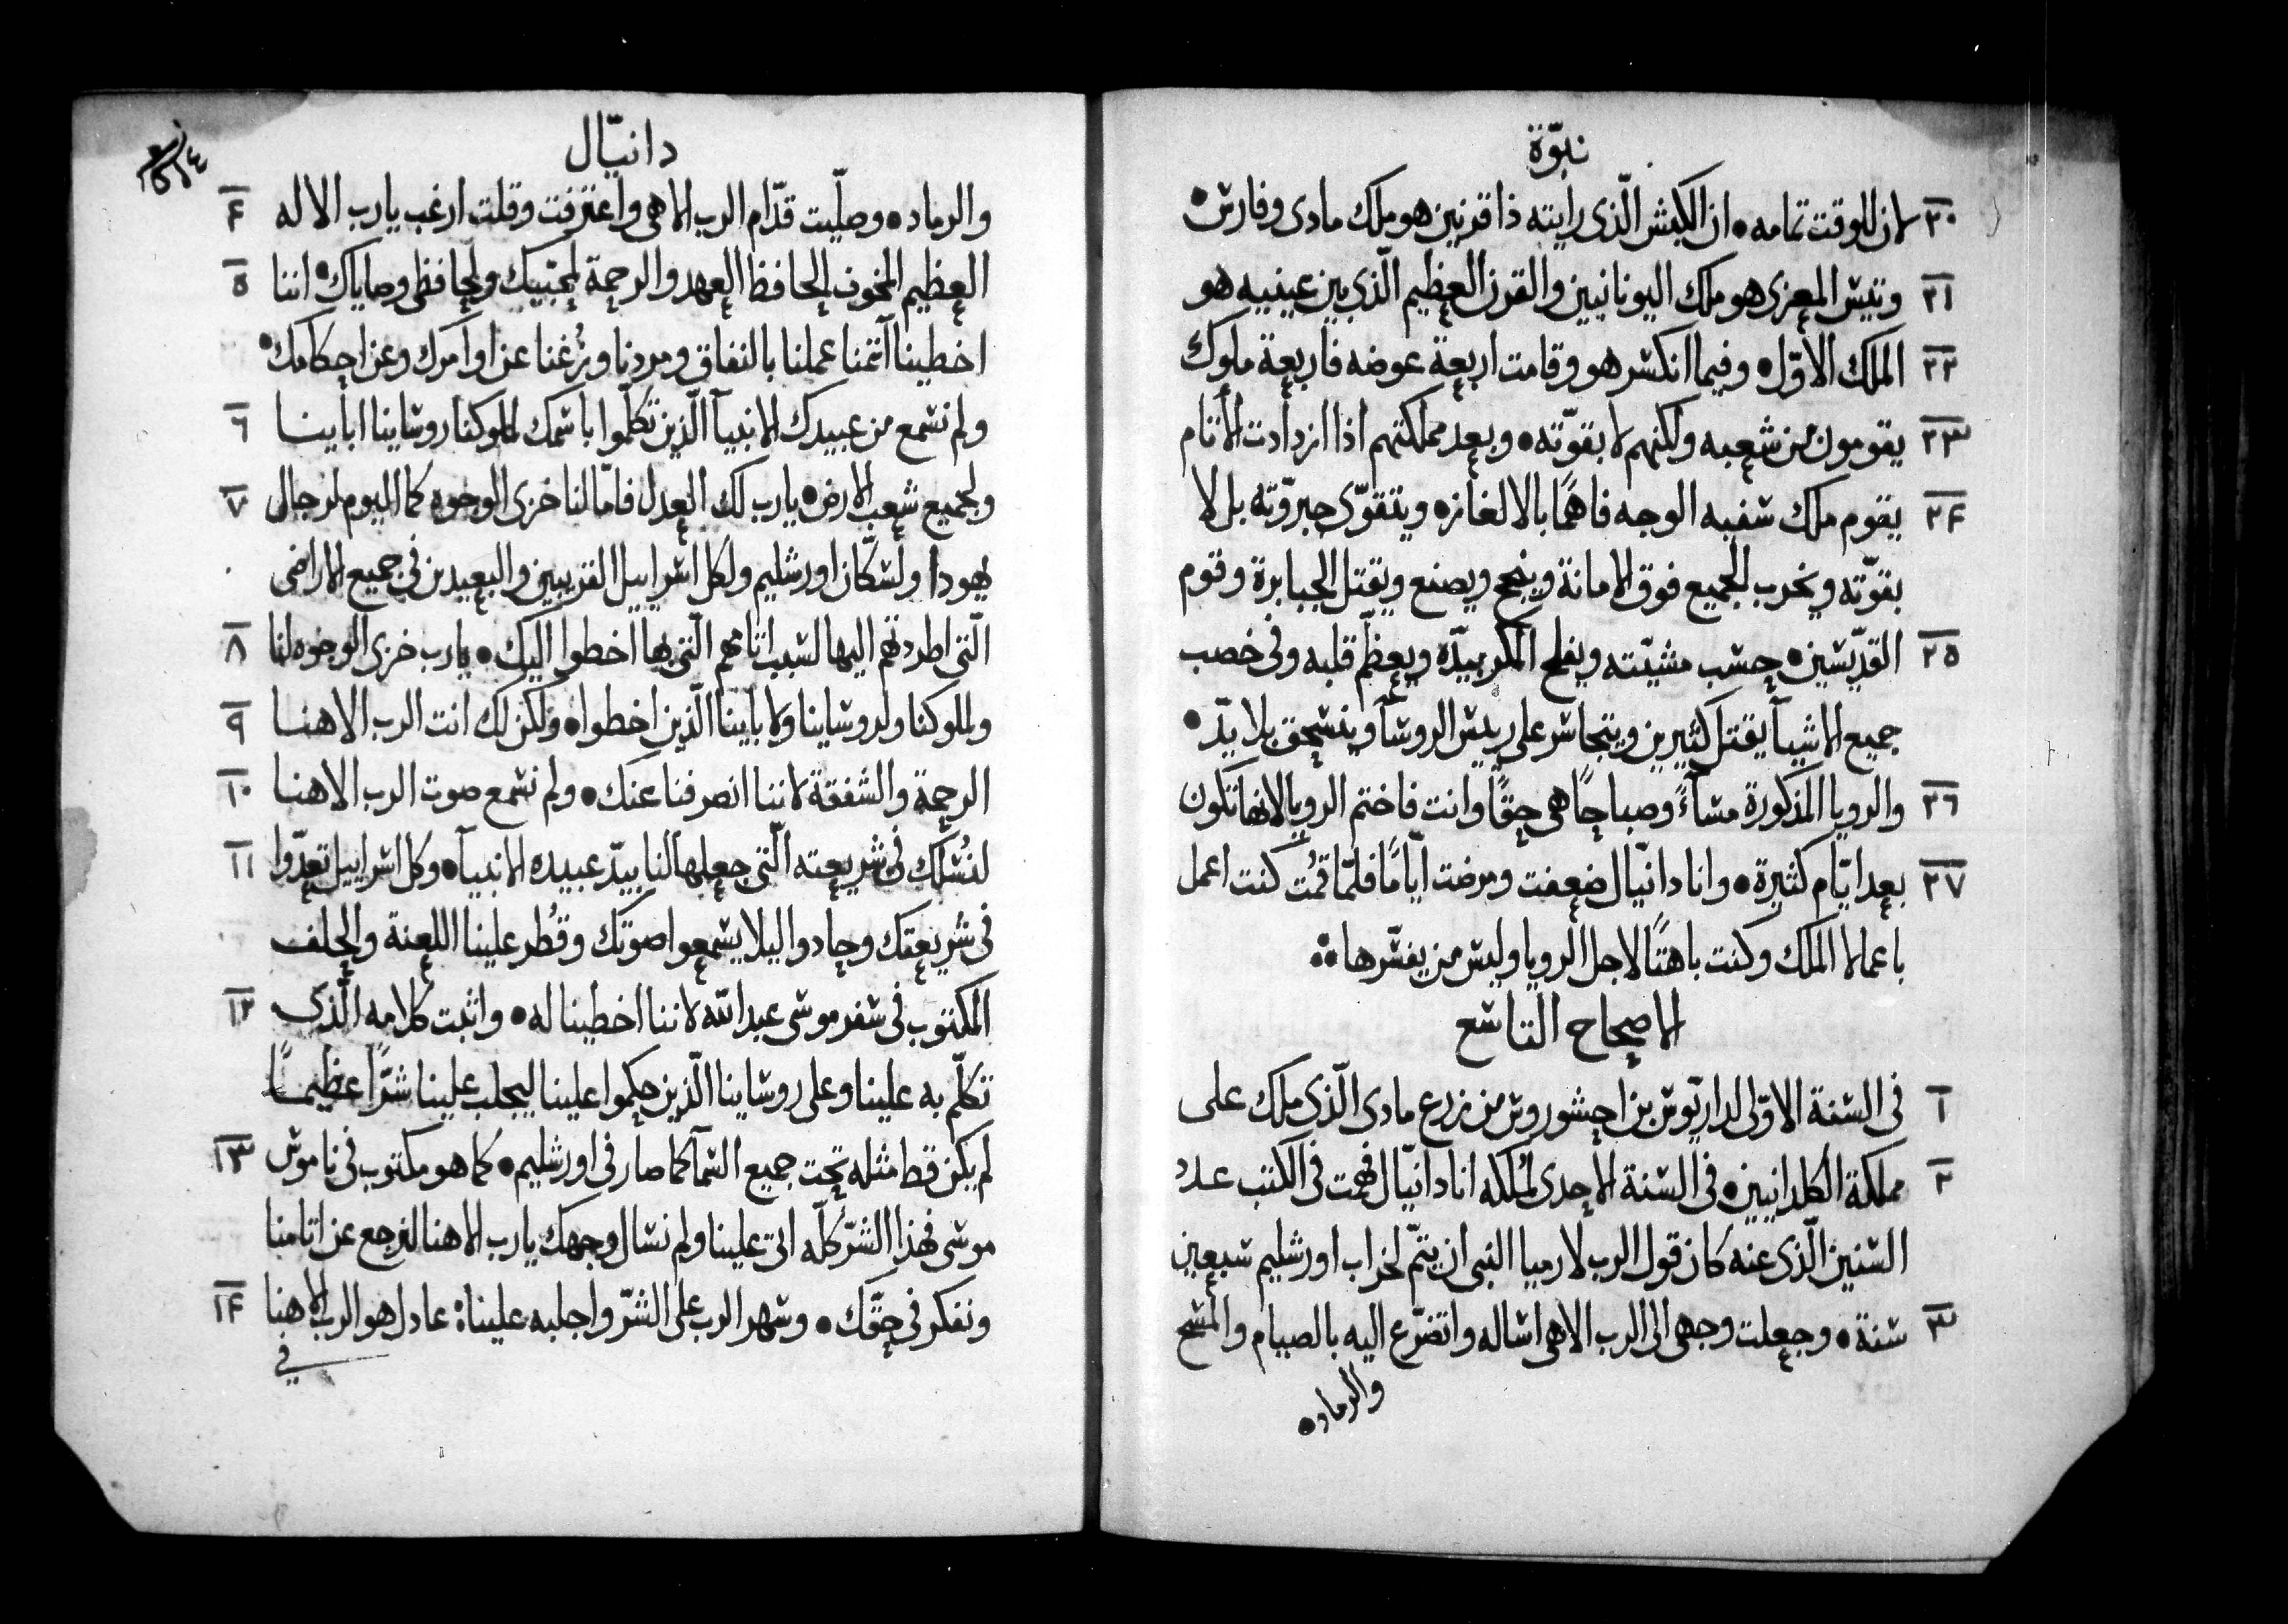 نبوّة
٢٠ لان للوقت تمامه • ان الكبش الّذى رايته ذا قرنين هو ملك مادى وفارس •
٢١ وتيس المعزى هو ملك اليونانيين والقرن العظيم الّذى بين عينيه هو
٢٢ الملك الاوّل • وفيما انكسر هو وقامت اربعة عوضه فاربعة ملوك
٢٣ يقومون من شعبه ولكنهم لا بقوّته • وبعد مملكتهم اذا ازدادت الأتام
٢٤ يقوم ملك سفيه الوجه فاهمًا بالالغاز • ويتقوّى جبروّته بل لا
بقوّته ويخرب الجميع فوق الامانة وينجح ويصنع ويقتل الجبابرة وقوم
٢٥ القدّيسين • حسب مشيّته ويفلح المكر بيدّه ويعظّم قلبه وفى خصب
جميع الاشيآ يقتل كثيرين ويتجاسر على رييس الروسآ وينسحق بلا يدّ •
٢٦ والرويا المذكورة مسآءً وصباحًا هى حقًا وانت فاختم الرويا لانها تكون
٢٧ بعد ايّام كثيرة • وانا دانيّال ضعفت ومرضت ايّامًا فلمّا قمُت كنت اعمل
باعمال الملك وكنت باهتًا لاجل الرويا وليس من يفسّرها
الاصحاح التاسع
١ فى السنة الاوّلى لداريّوس بن احشوروش من زرع مادى الّذى ملك على
٢ مملكة الكلدانيين • فى السنة الاحدى لمُلكه انا دانيّال فهمت فى الكتب عدد
السنين الّذى عنه كان قول الرب لارميا النبى ان يتمّ لخراب اورشليم سبعين
٣ سنة • وجعلت وجهى الى الرب الاهى اساله واتضرّع اليه بالصيام والمسح
والرماد •
دانيّال
والرماد • وصلّيت قدّام الرب الاهى واعترفت وقلت ارغب يارب الاله ٤
العظيم المخوف الحافظ العهد والرحمة لمحبّيك ولحافظى وصاياك • اننا ٥
اخطينا آتمنا عملنا بالنفاق ومردنا وزُغنا عن اوامرك وعن احكامك •
ولم نسمع من عبيدك الانبيآ الّذين تكلّموا باسمك لملوكنا روساينا اباينا ٦
ولجميع شعب الارض • يارب لك العدل فامّا لنا خزى الوجوه كما اليوم لرجال ٧
يهودا ولسكّان اورشليم ولكل اسراييل القريبين والبعيدين فى جميع الاراضى
الّتى اطردتهم اليها لسبب اتامهم الّتى بها اخطوا اليك • يارب خزى الوجوه لنا ٨
ولملوكنا ولروساينا ولاباينا الّذين اخطوا • ولكن لك انت الرب الاهنا ٩
الرحمة والشفقة لاننا انصرفنا عنك • ولم نسمع صوت الرب الاهنا ١٠
لنسُلك فى شريعته الّتى جعلها لنا بيدّ عبيده الانبيآ • وكل اسراييل تعدّوا ١١
فى شريعتك وحادوا ليلا يسمعوا صوتك وقُطر علينا اللعنة والحلف
المكتوب فى سفر موسى عبد الله لاننا اخطينا له • واثبت كلامه الّذى ١٢
تكلّم به علينا وعلى روساينا الّذين حكموا علينا ليجلب علينا شرّاً عظيمًا
لم يكن قط مثله تحت جميع السمآ كما صار فى اورشليم • كما هو مكتوب فى ناموس ١٣
موسى فهذا الشرّ كلّه اتى علينا ولم نسال وجهك يارب الاهنا لنرجع عن اتامنا
ونفكر فى حقّك • وسهر الرب على الشرّ واجلبه علينا • عادل هو الرب الاهنا ١٤
فى